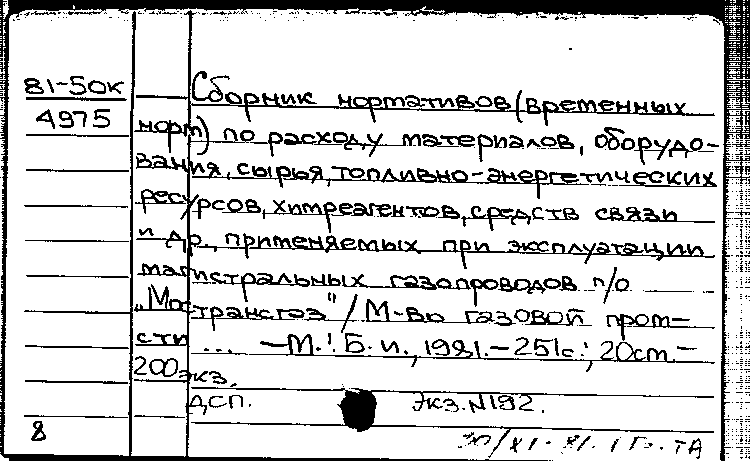 81-50К
4975
Сборник нормативов (временных
норм) по расходу материалов, оборудо-
вания, сырья, топливно-энергетических
ресурсов, химреагентов, средств связи
и др., применяемых при эксплуатации
магистральных газопроводов п/о
„Мострансгаз" / М-во газовой пром-
сти ... —М.: Б. и., 1981.— 251с.; 20см.—
200экз.
ДСП. Экз.N192.
8